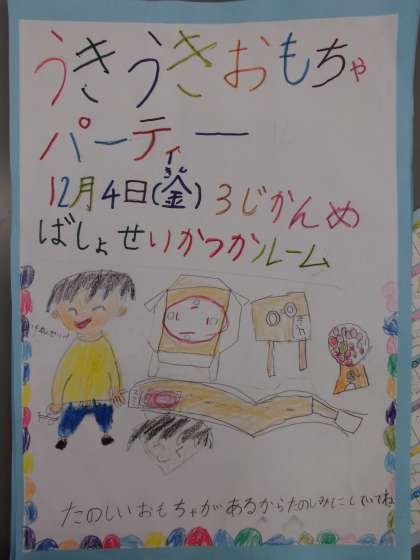 うきうきおもちゃ
パーティー
12月4日(金) 3じかんめ
ばしょせいかつかルーム
たのしいおもちゃがあるからたのしみにしていてね